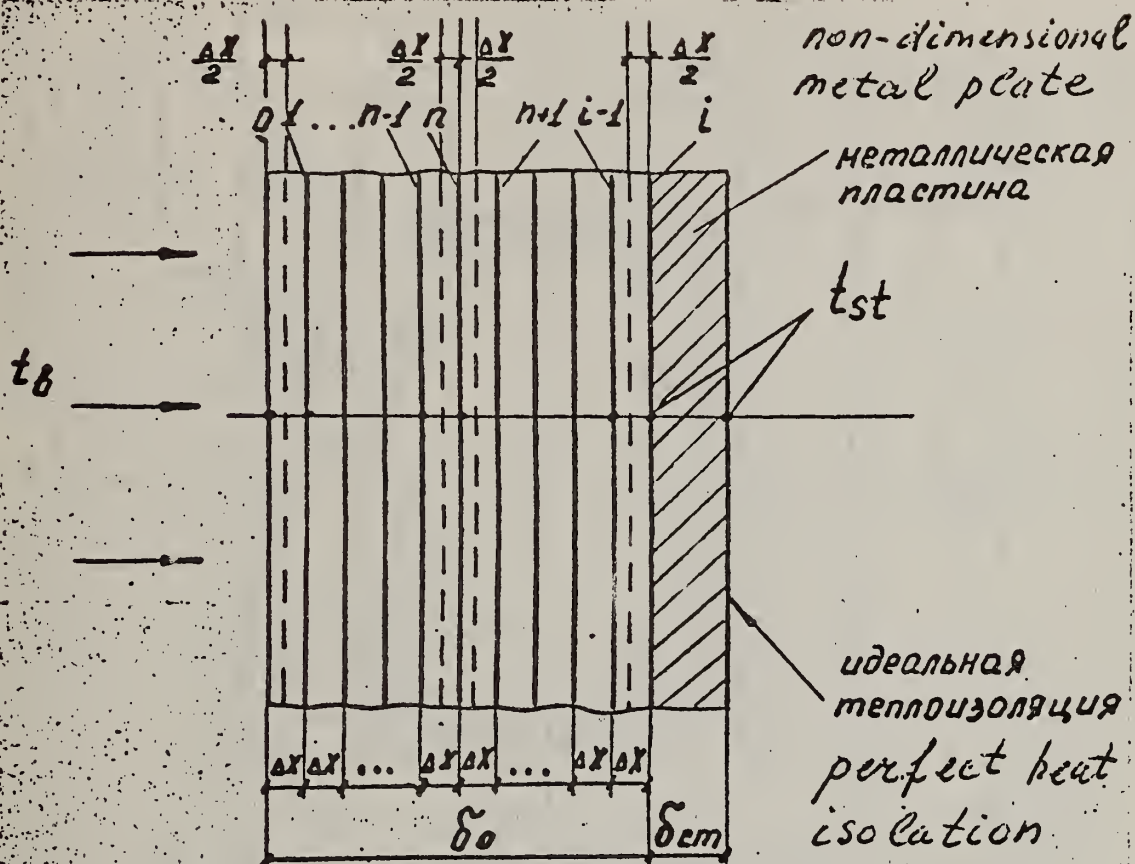 ΔX/2
ΔX/2
ΔX/2
ΔX/2
non-dimensional
metal plate
0 1 ... n-1 n n+1 i-1 i
металлическая
пластина
t_st
t_в
идеальная
теплоизоляция
perfect heat
isolation
ΔX ΔX ... ΔX ΔX ... ΔX ΔX
δ₀ δ_ст